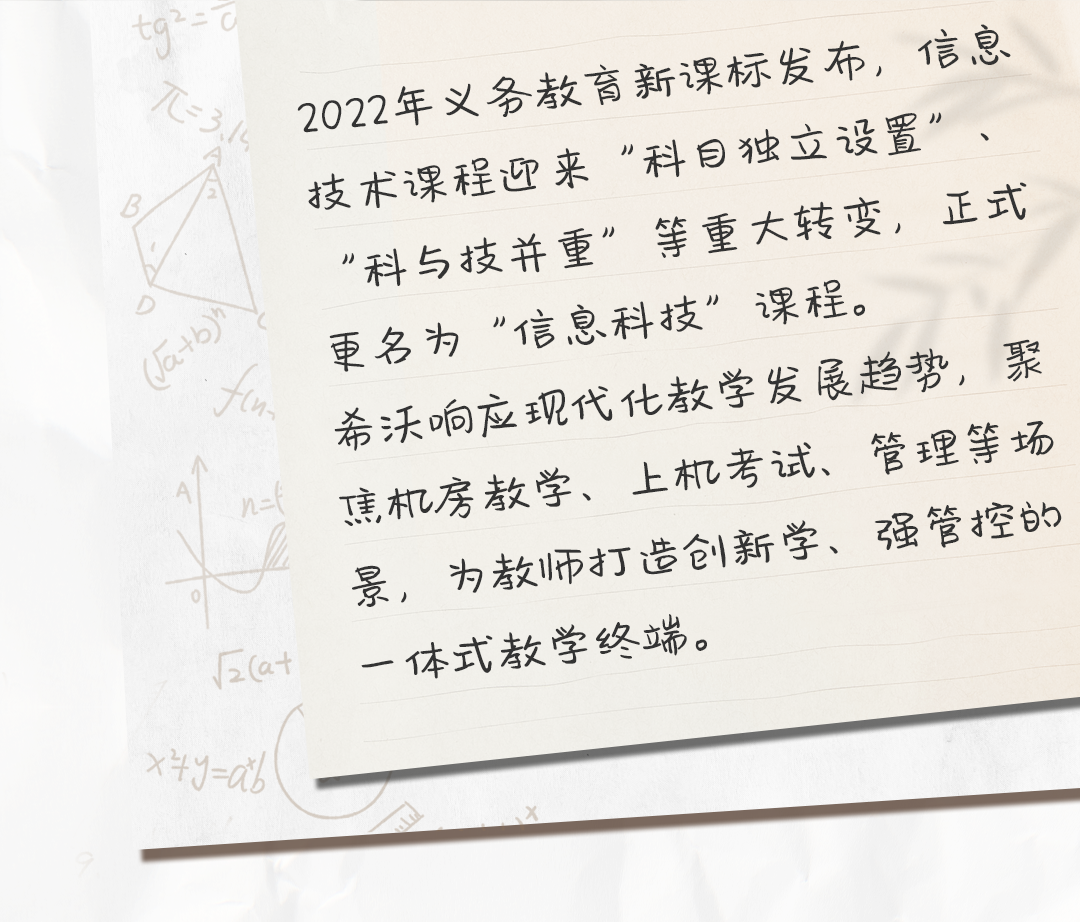 tg²=
π=3.1
A
B
2
D
(√a+b)ⁿ
f(n-
A
n=(
0
√2(a+
x²+y=aᵡb
2022年义务教育新课标发布，信息
技术课程迎来“科目独立设置”、
“科与技并重”等重大转变，正式
更名为“信息科技”课程。
希沃响应现代化教学发展趋势，聚
焦机房教学、上机考试、管理等场
景，为教师打造创新学、强管控的
一体式教学终端。